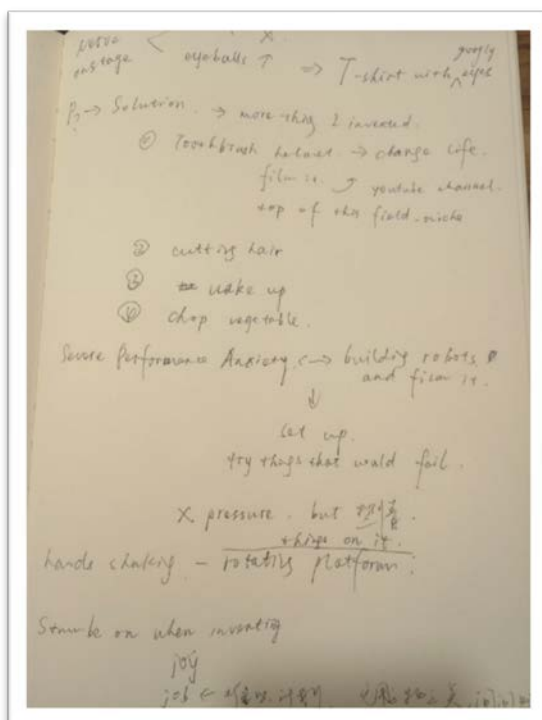 onstage eyeballs ↑ ⇒ T-shirt with googly eyes
→ Solution. → more thing I invented.
① Toothbrush helmet → change life.
film it. youtube channel.
top of this field. niche
② cutting hair
③ wake up
④ chop vegetable.
Severe Performance Anxiety → building robots
and film it.
↓
set up.
try things that would fail.
X pressure. but
things on it.
hands shaking - rotating platform.
on when inventing
joy
job ←